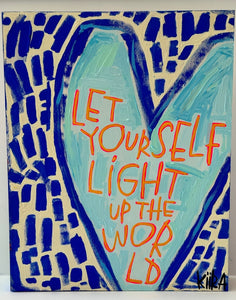 LET
YOURSELF
LiGHT
UP THE
WOR
LD
KiiKA